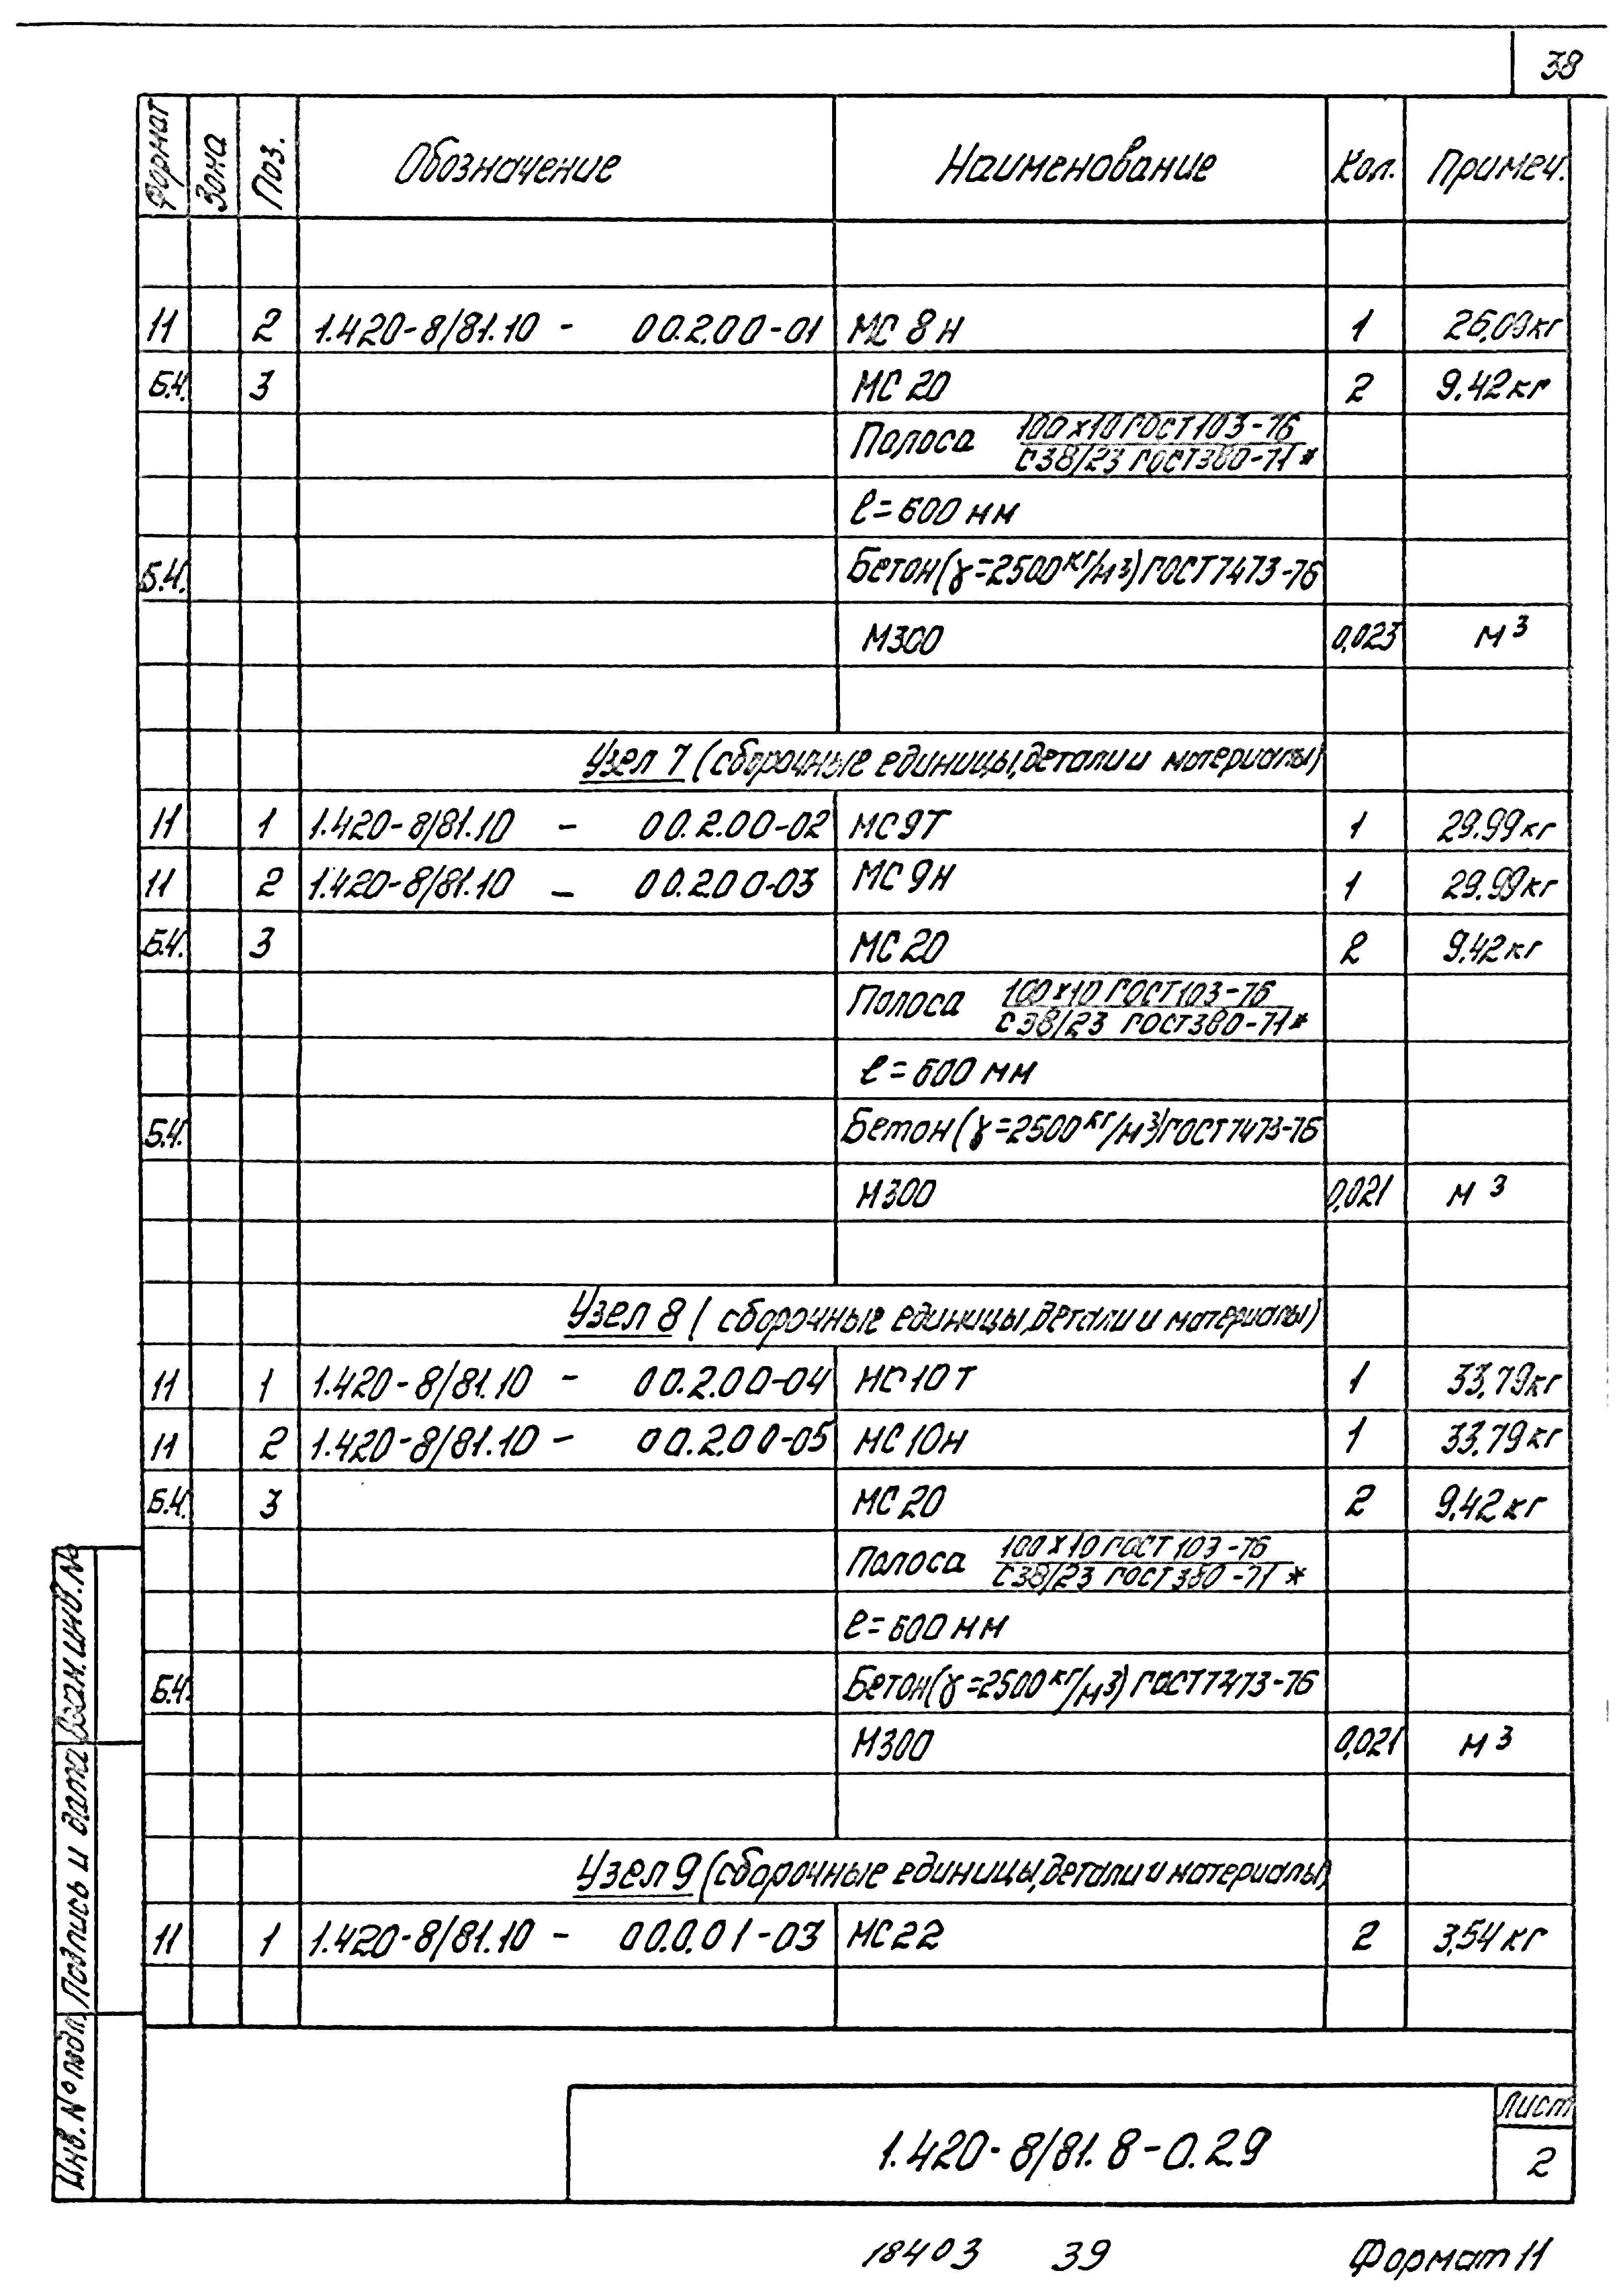 38
Формат Зона Поз. Обозначение Наименование Кол. Примеч.
11 2 1.420-8/81.10 - 00.2.00-01 МС 8Н 1 26,09кг
Б.Ч. 3 МС 20 2 9.42кг
Полоса 100х10 ГОСТ 103-76
С38/23 ГОСТ 380-71*
ℓ=600 мм
Б.Ч. Бетон(γ=2500кг/м³)ГОСТ 7473-76
М300 0,023 м³
Узел 7 (сборочные единицы, детали и материалы)
11 1 1.420-8/81.10 - 00.2.00-02 МС9Т 1 29.99кг
11 2 1.420-8/81.10 - 00.200-03 МС9Н 1 29.99кг
Б.Ч. 3 МС20 2 9,42кг
Полоса 100х10 ГОСТ 103-76
С38/23 ГОСТ 380-71*
ℓ=600 мм
Б.Ч. Бетон (γ=2500кг/м³)ГОСТ 7473-76
М300 0,021 м³
Узел 8 (сборочные единицы, детали и материалы)
11 1 1.420-8/81.10 - 00.2.00-04 МС10Т 1 33,79кг
11 2 1.420-8/81.10 - 00.2.00-05 МС10Н 1 33,79кг
Б.Ч. 3 МС20 2 9,42кг
Полоса 100х10 ГОСТ 103-76
С38/23 ГОСТ 380-71*
ℓ=600 мм
Б.Ч. Бетон(γ=2500кг/м³) ГОСТ 7473-76
М300 0,021 м³
Узел 9 (сборочные единицы, детали и материалы)
11 1 1.420-8/81.10 - 00.0.01-03 МС22 2 3,54кг
Взам.инв.№
Подпись и дата
Инв.№подл.
1.420-8/81.8-0.2.9
Лист
2
18403 39 Формат 11